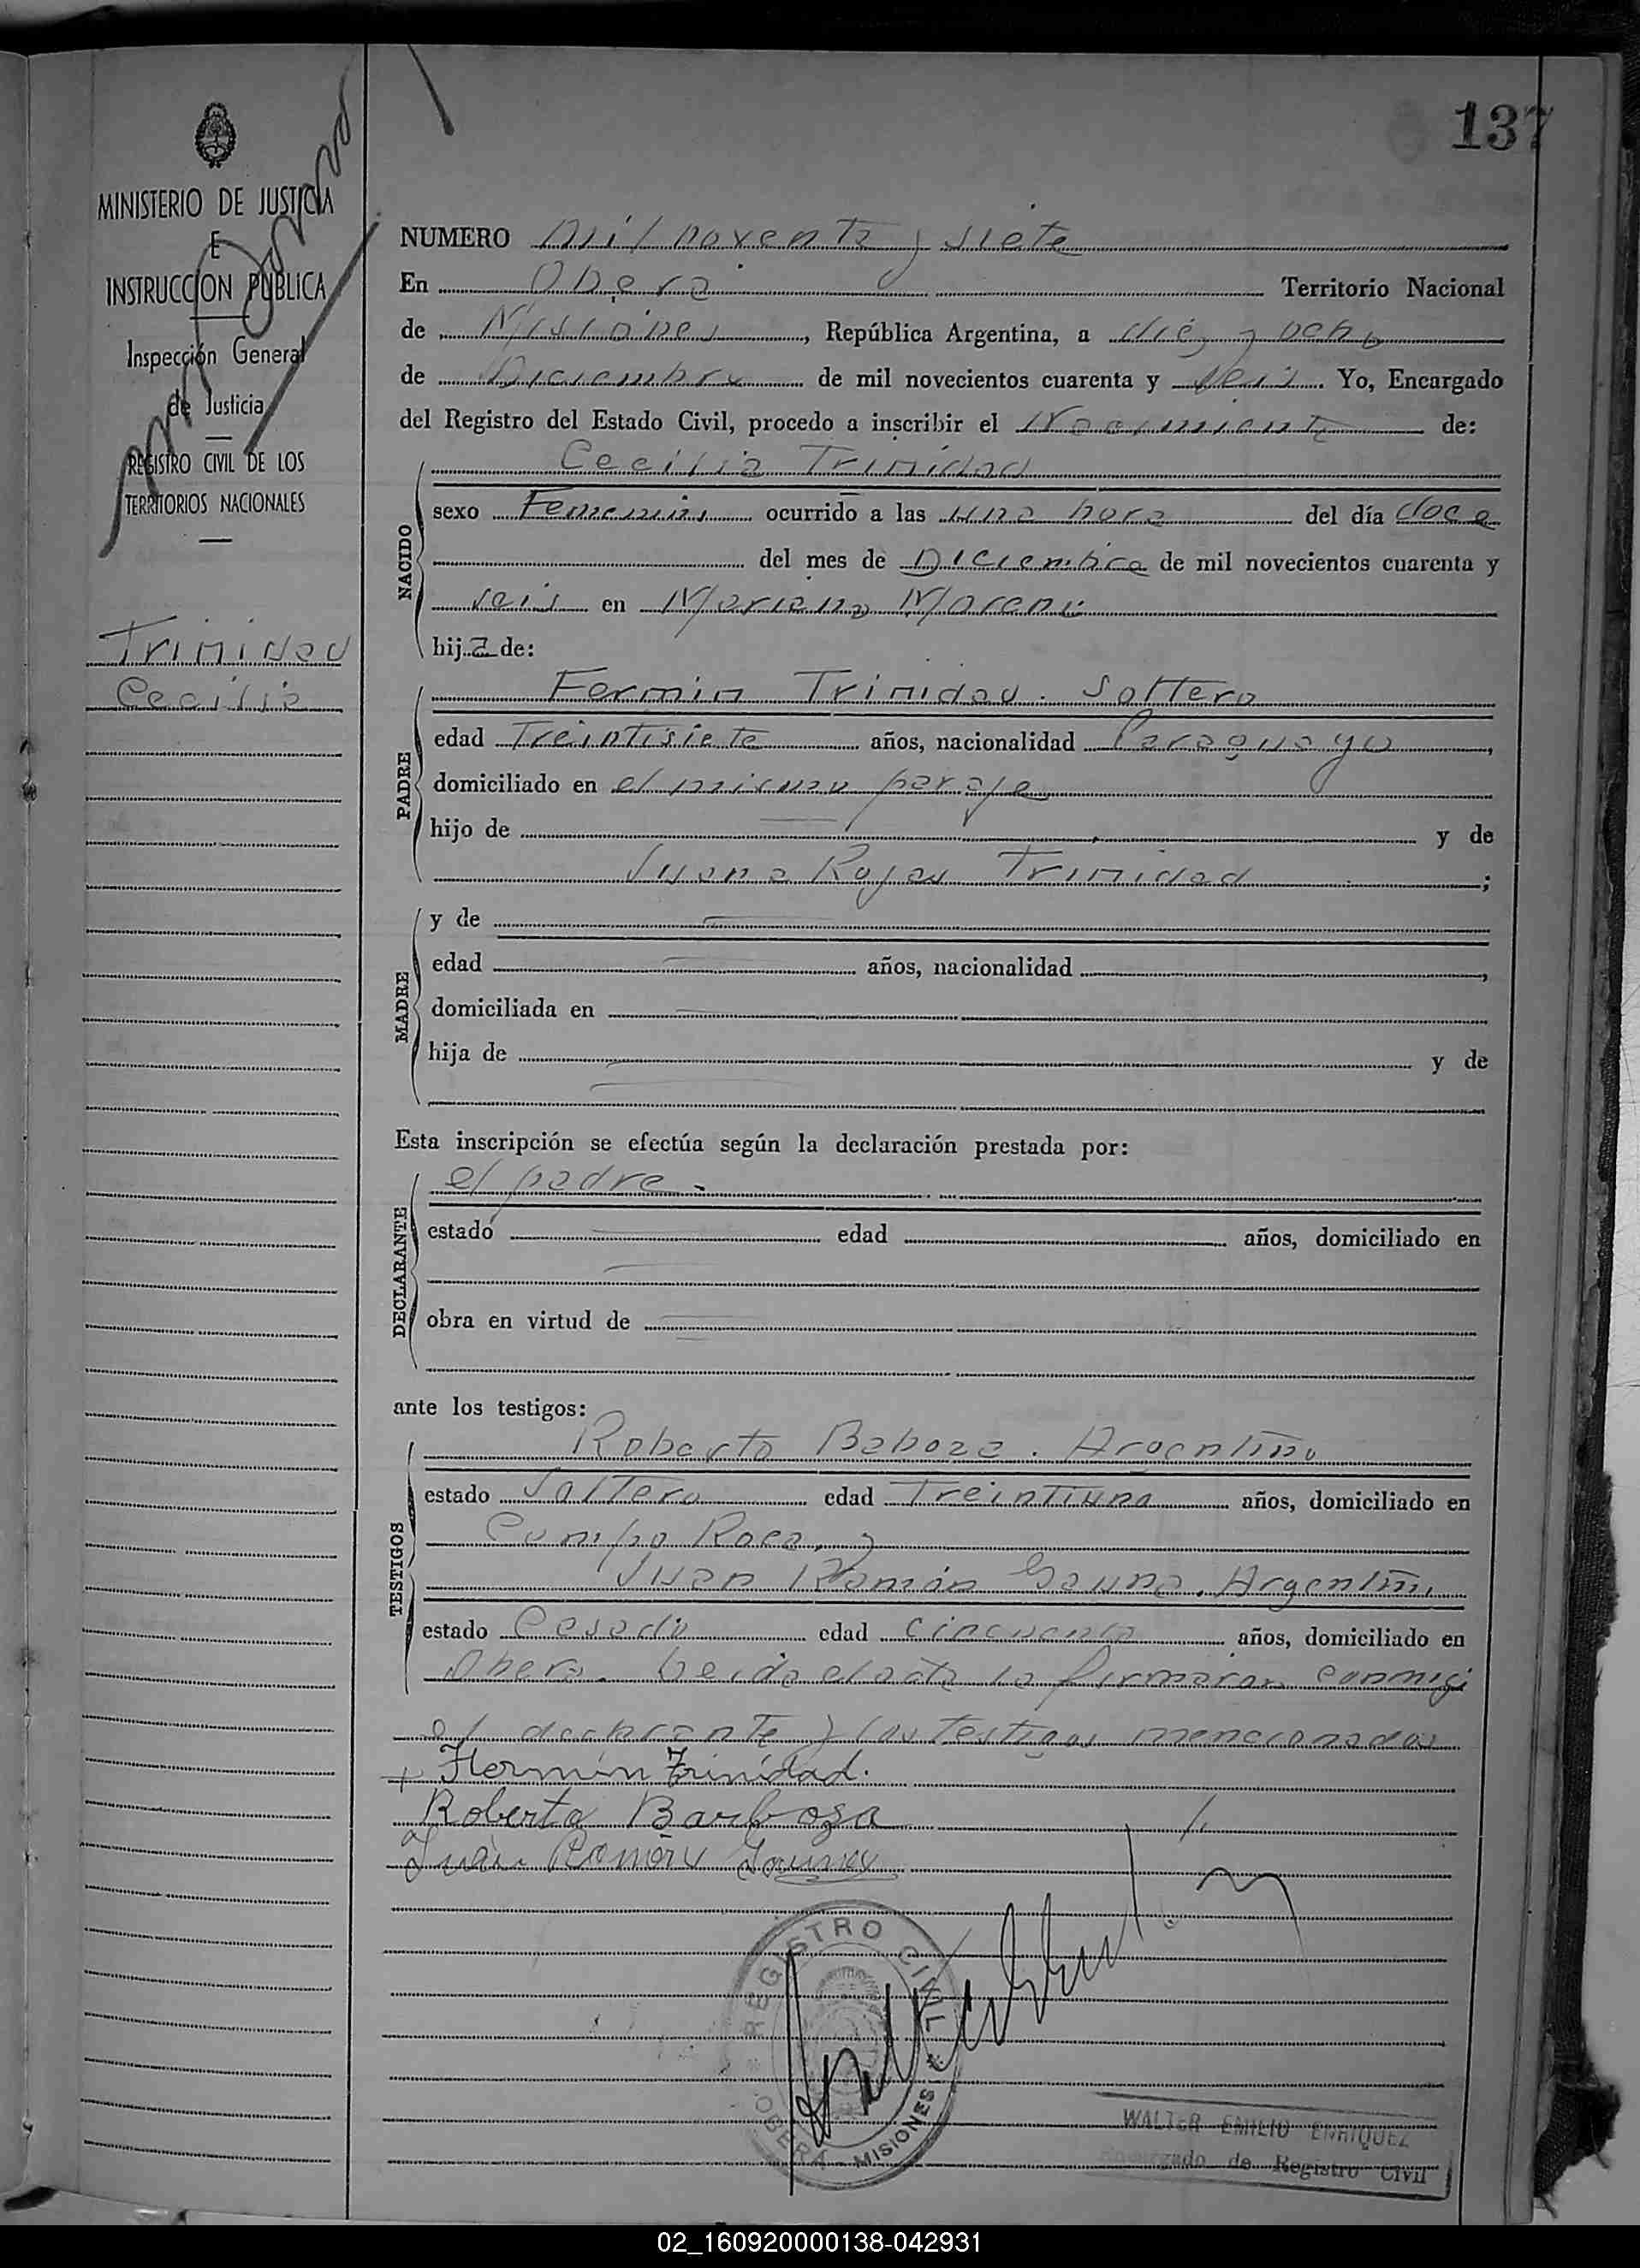 137
MINISTERIO DE JUSTICIA
E
INSTRUCCIÓN PUBLICA
Inspección General
de Justicia
REGISTRO CIVIL DE LOS
TERRITORIOS NACIONALES
Trinidad
Cecilia
NUMERO Mil noventa y siete
En Oberá Territorio Nacional
de Misiones, República Argentina, a diez y ocho
de Diciembre de mil novecientos cuarenta y seis. Yo, Encargado
del Registro del Estado Civil, procedo a inscribir el Nacimiento de:
NACIDO
Cecilia Trinidad
sexo Femenino ocurrido a las una hora del día doce
del mes de Diciembre de mil novecientos cuarenta y
seis en Mariano Moreno
hija de:
PADRE
Fermin Trinidad. Soltero
edad Treintisiete años, nacionalidad Paraguayo,
domiciliado en el mismo paraje
hijo de y de
Juana Rojas Trinidad;
MADRE
y de
edad años, nacionalidad,
domiciliada en
hija de y de
Esta inscripción se efectúa según la declaración prestada por:
DECLARANTE
el padre.
estado edad años, domiciliado en
obra en virtud de
ante los testigos:
TESTIGOS
Roberto Baboza. Argentino
estado Soltero edad Treintiuno años, domiciliado en
Campo Roca, y
Juan Ramón Gauna. Argentino,
estado Casado edad cincuenta años, domiciliado en
Oberá. Leída el acta la firmaron conmigo
el declarante y los testigos mencionados
+ Hermin Trinidad.
Roberto Barboza
Juan Ramón Gauna
REGISTRO CIVIL
OBERÁ - MISIONES
WALTER EMILIO ENRIQUEZ
Encargado de Registro Civil
02_160920000138-042931